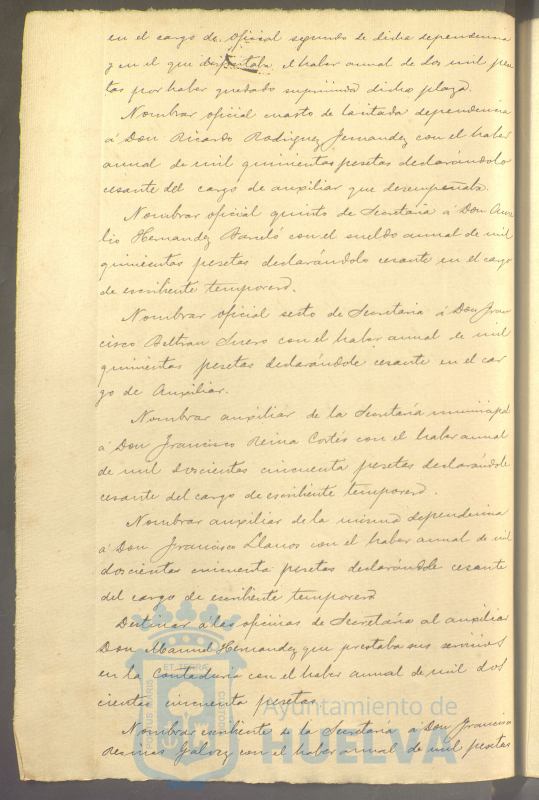 en el cargo de oficial segundo de dicha dependencia
y en el que disfrutaba el haber anual de dos mil pese
tas por haber quedado suprimida dicha plaza.
Nombrar oficial cuarto de la citada dependencia
á Don Ricardo Rodriguez Fernandez con el haber
anual de mil quinientas pesetas declarándolo
cesante del cargo de auxiliar que desempeñaba.
Nombrar oficial quinto de Secretaria á Don Aure
lio Hernandez Barceló con el sueldo anual de mil
quinientas pesetas declarándolo cesante en el cargo
de escribiente temporero.
Nombrar oficial sesto de Secretaria á Don Fran
cisco Beltran Suero con el haber anual de mil
quinientas pesetas declarándole cesante en el car
go de Auxiliar.
Nombrar auxiliar de la Secretaría municipal
á Don Francisco Reina Cortés con el haber anual
de mil doscientas cincuenta pesetas declarándole
cesante del cargo de escribiente temporero.
Nombrar auxiliar de la misma dependencia
á Don Francisco Llanos con el haber anual de mil
doscientas cincuenta pesetas declarándole cesante
del cargo de escribiente temporero
Destinar á las oficinas de Secretaría al auxiliar
Don Manuel Hernandez que prestaba sus servicios
en la Contaduria con el haber anual de mil dos
cientas cincuenta pesetas.
Nombrar escribiente de la Secretaría á Don Francisco
con el haber anual de mil pesetas
PORTUS MARIS
ET TERRÆ
CUSTODIA
Ayuntamiento de
HUELVA